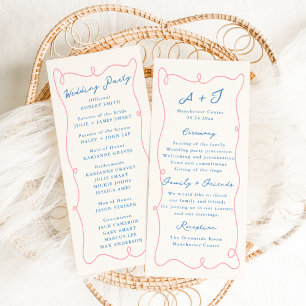 Wedding Party
Officiant
ROBERT SMITH
Parents of the Bride
JULIE + JAMES SMART
Parents of the Groom
HALEY + JOHN LEE
Maid of Honor
KARIANNE GRAVES
Bridesmaids
KARIANNE GRAVES
JULLI SMART
MICKIE JOHNS
JESSICA AWEL
Man of Honor
JASON YUMIKEN
Groomsmen
JACK CAMERON
GABE SMART
MARCUS LEE
MAX ANDERSON
A + J
Manchester Center
Ceremony
Seating of the family
Wedding party procession
Welcoming and presentation
Vows and Commitment
Giving of the rings
Family + Friends
We would like to thank
our family and friends
for joining us in our journey
and our marriage.
Reception
The Oceanside Room
Manchester Center